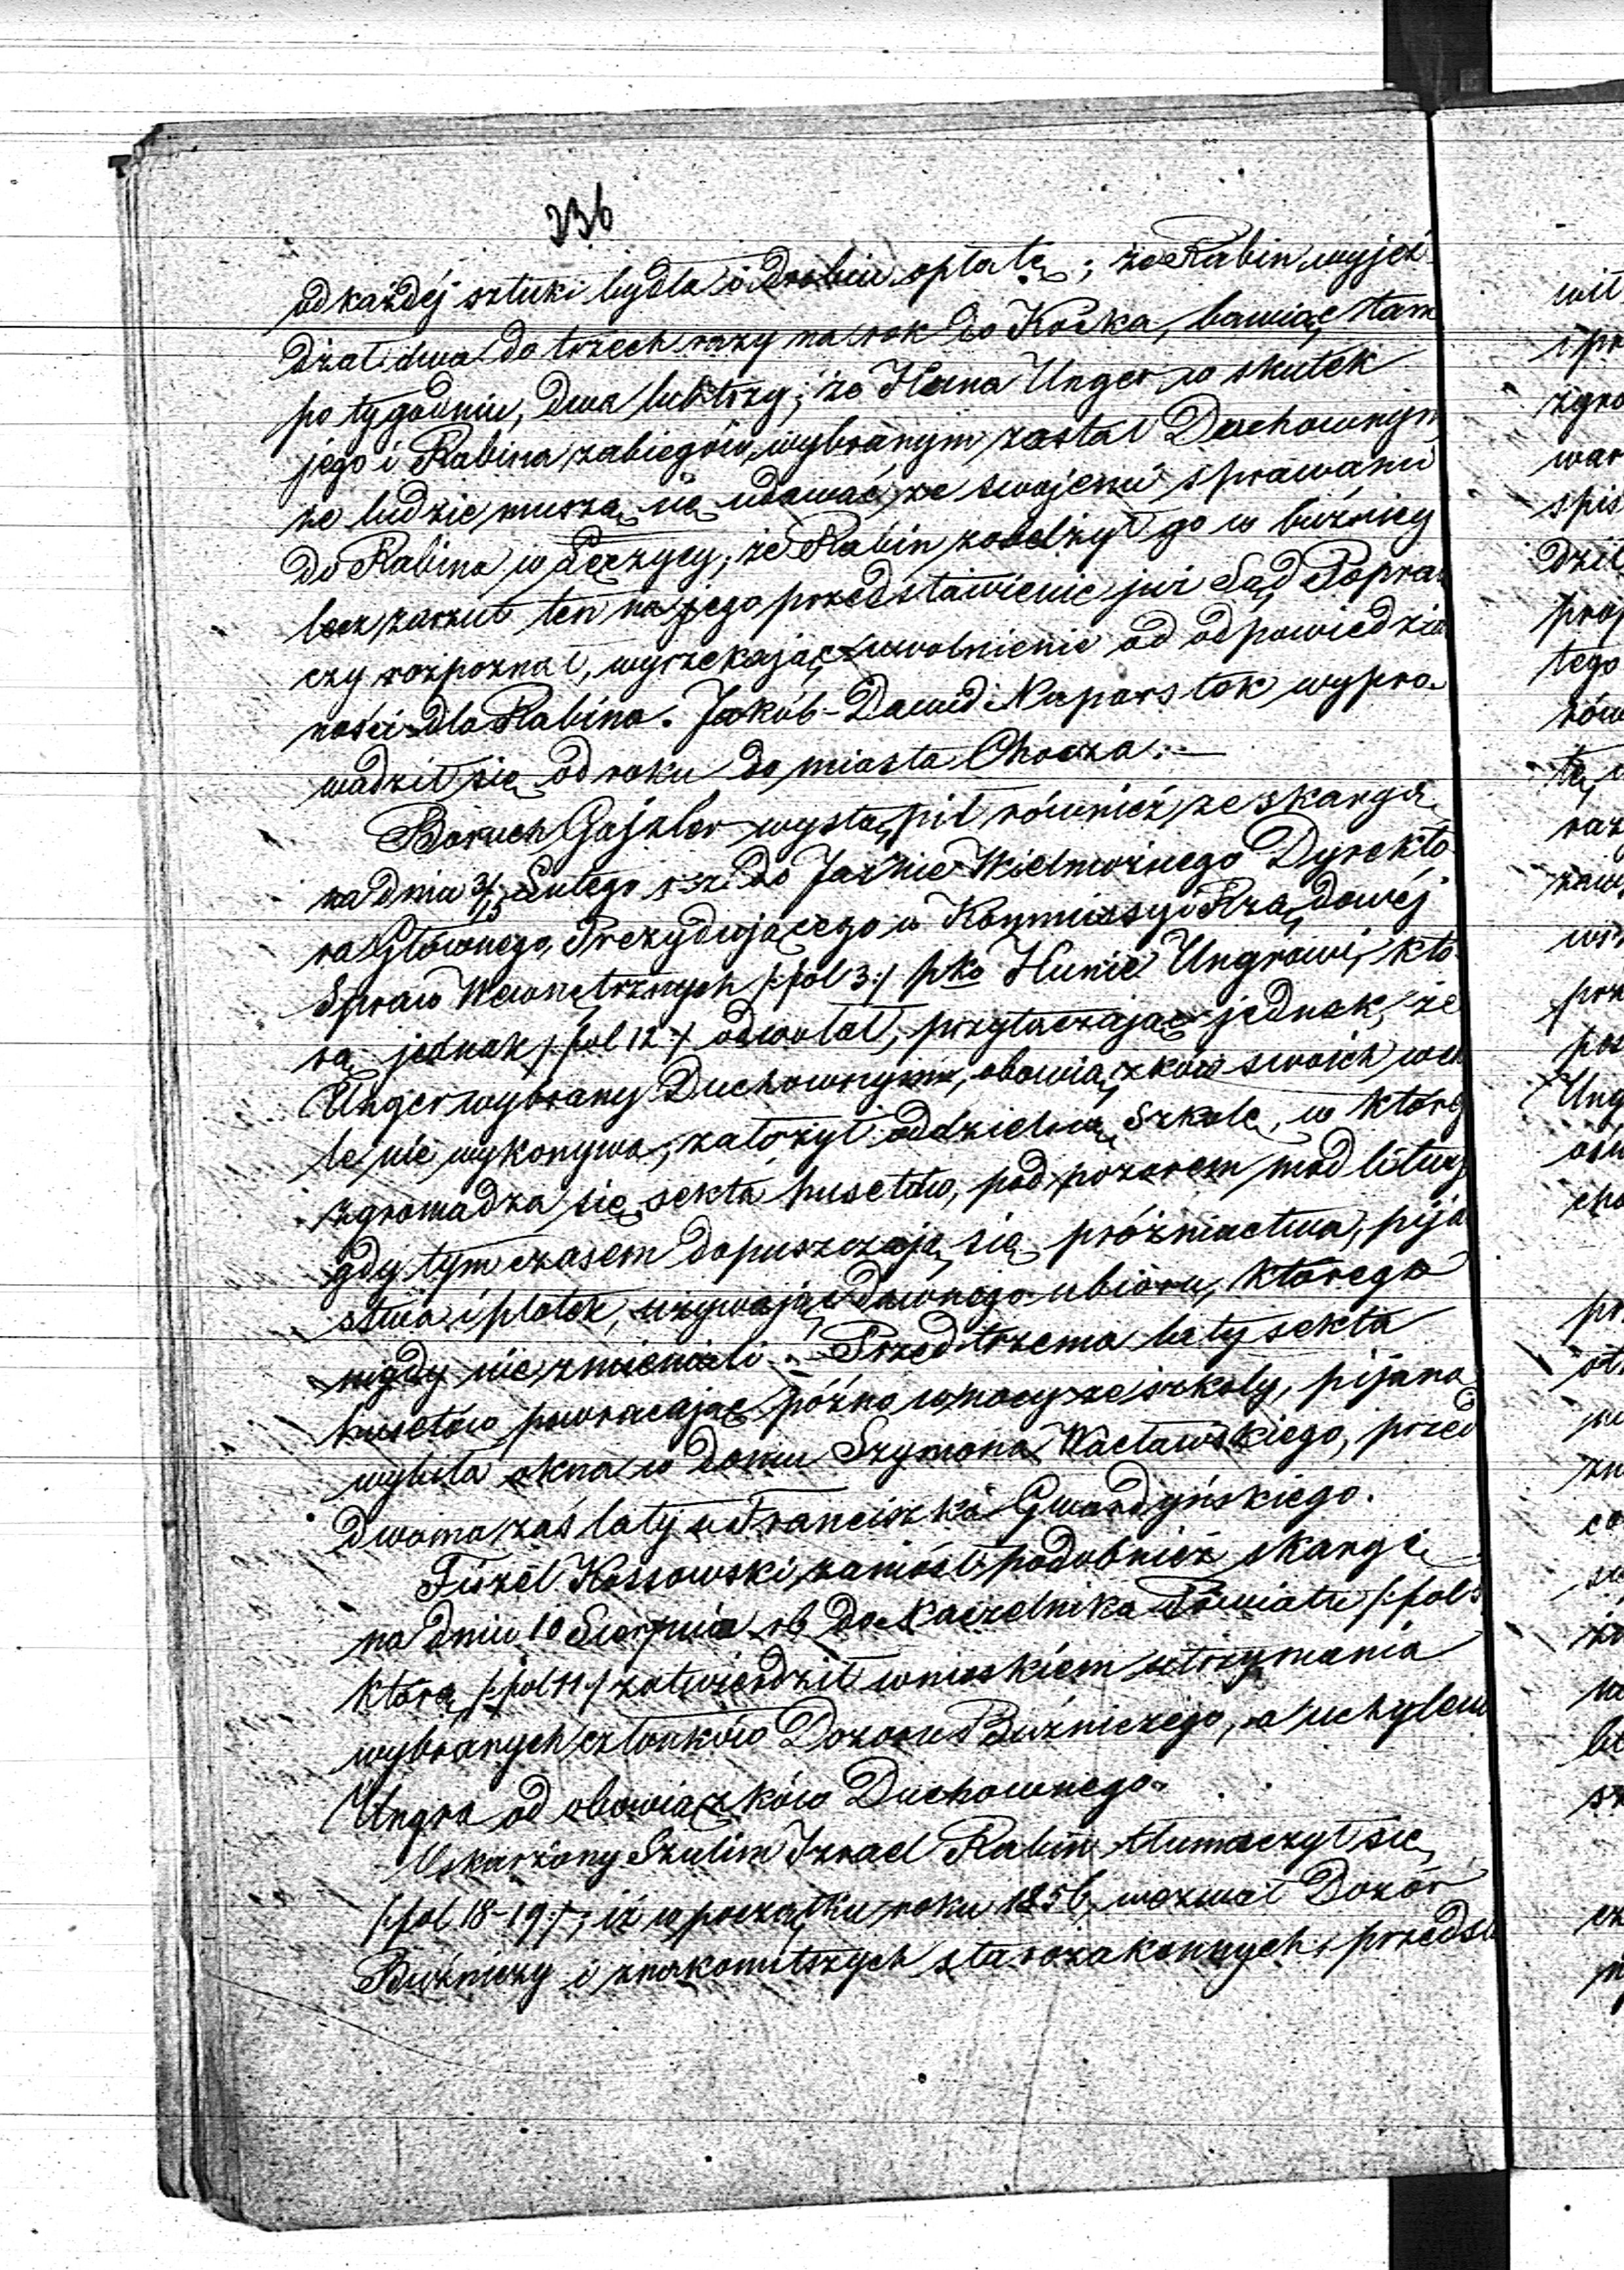 236
od każdéj sztuki bydła i drobiu opłatę; że Rabin wyjeż
dżał dwa do trzech razy na rok do Kocka, bawiąc tam
po tygodniu, dwa lub trzy; że Huna Unger w skutek
jego i Rabina zabiegów, wybranym został Duchownym
że ludzie muszą się udawać ze swojemi sprawami
do Rabina w Łęczycy; że Rabin zobelżył go w bóźnicy
lecz zarzut ten na jego przedstawienie już Sąd Popraw
czy rozpoznał, wyrzekając uwolnienie od odpowiedzial
ności dla Rabina. Jakób-Dawid Naparstok wypro-
wadził się od roku do miasta Chocza.
Boruch Gajzler wystąpił również ze skargą
na dniu 3/15 Lutego r.z. do Jaśnie Wielmożnego Dyrekto
ra Głównego, Prezydującego w Kommissyi Rządowéj
Spraw Wewnętrznych /:fol 3:/ pko Hunie Ungrowi, któ
rą jednak /:fol 12:/ odwołał, przytaczając jednak, że
Unger wybrany Duchownym, obowiązków swoich wca
le nie wykonywa, założył oddzielną szkołę, w któréj
zgromadza się sekta husetów, pod pozorem modlitwy
gdy tymczasem dopuszczają się próżniactwa, pija
stwa i plotek, używając dawnego ubioru, którego
nigdy nie zmieniali. Przed trzema laty sekta
husetów powracając późno w nocy ze szkoły, pijana
wybiła okna w domu Szymona Wacławskiego, przed
dwoma zaś laty u Franciszka Gwardyńskiego.
Fiszel Kossowski zaniósł podobnież skargę
na dniu 10 Sierpnia rb do Naczelnika Powiatu /:fol
którą /:fol 11:/ zatwierdził wnioskiem utrzymania
wybranych członków Dozoru Bóźniczego, a uchylenia
Ungra od obowiązków Duchownego.
Uskarżony Szulim Izrael Rabin tłumaczył się
/:fol 18-19:/, iż w początku roku 1856, wezwał Dozór
Bóźniczy i znakomitszych starozakonnych, przedsta